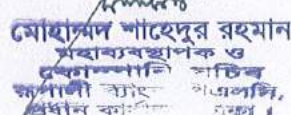 মোহাম্মদ শাহেদুর রহমান
মহাব্যবস্থাপক ও
কোম্পানি সচিব
রূপালী ব্যাংক পিএলসি,
প্রধান কার্যালয়, ঢাকা।